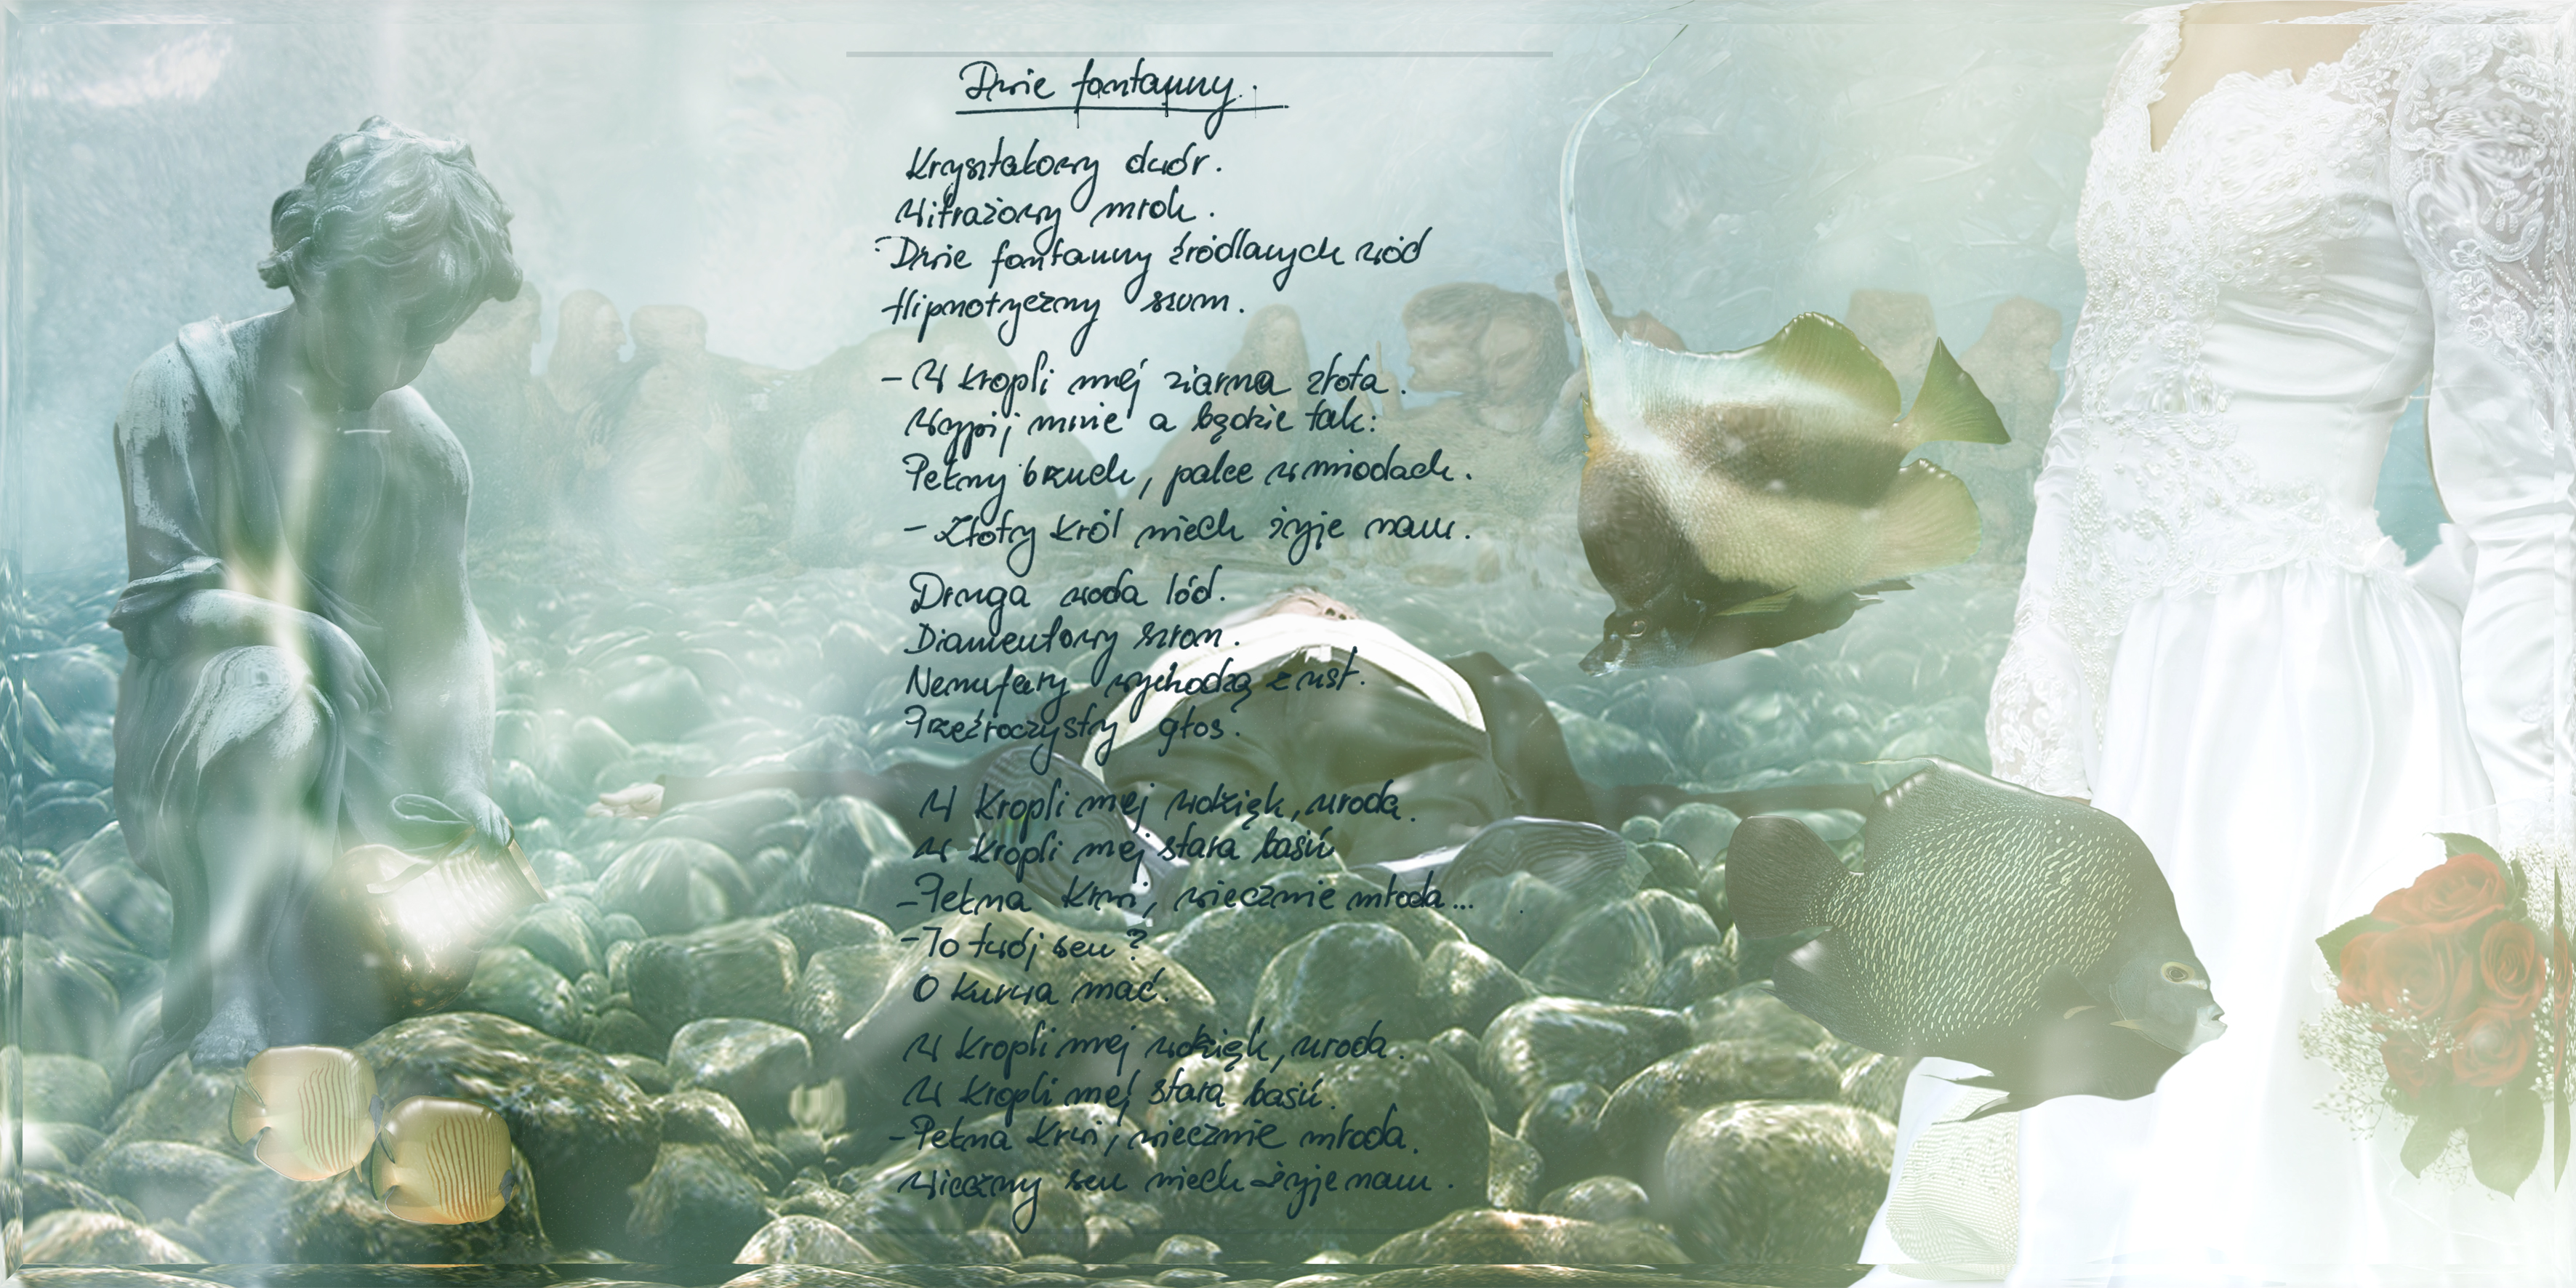 Dwie fontanny.
Kryształowy dwór.
Witrażowy mrok.
Dwie fontanny źródlanych wód
Hipnotyczny szum.
- W kropli mej ziarna złota.
Wypij mnie a będzie tak:
Pełny brzuch, palce w miodach.
- Złoty król niech żyje nam.
Druga woda lód.
Diamentowy szron.
Nenufary wychodzą z ust.
Przeźroczysty głos.
W kropli mej wdzięk, uroda.
W kropli mej stara baśń
- Pełna krwi, wiecznie młoda...
- To twój sen?
O kurwa mać.
W kropli mej wdzięk, uroda.
W kropli mej stara baśń.
- Pełna krwi, wiecznie młoda.
Wieczny sen niech żyje nam.